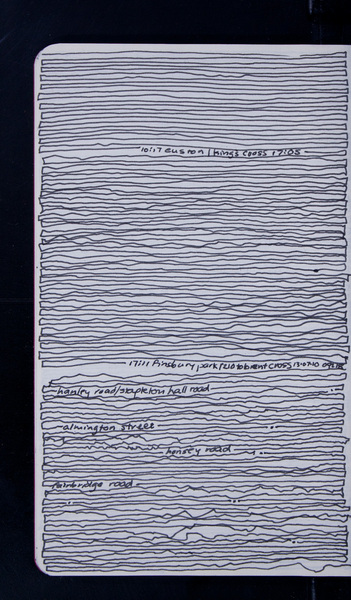 10:17 euston / kings cross 17:05
17:11 Finsbury park / 210 to brent cross 13-07-10
hanley road/stapleton hall road
almington street
hornsey road
fairbridge road